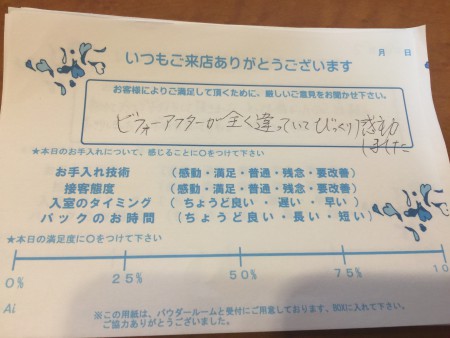 月 日
いつもご来店ありがとうございます
お客様によりご満足して頂くために、厳しいご意見をお聞かせ下さい。
ビフォーアフターが全く違っていてびっくり!感動
しました
★本日のお手入れについて、感じることに○をつけて下さい
お手入れ技術 (感動・満足・普通・残念・要改善)
接客態度 (感動・満足・普通・残念・要改善)
入室のタイミング (ちょうど良い・遅い・早い)
パックのお時間 (ちょうど良い・長い・短い)
★本日の満足度に○をつけて下さい
0% 25% 50% 75% 10
Ai
※この用紙は、パウダールームと受付にご用意しております。BOXに入れて下さい。
ご協力ありがとうございました。